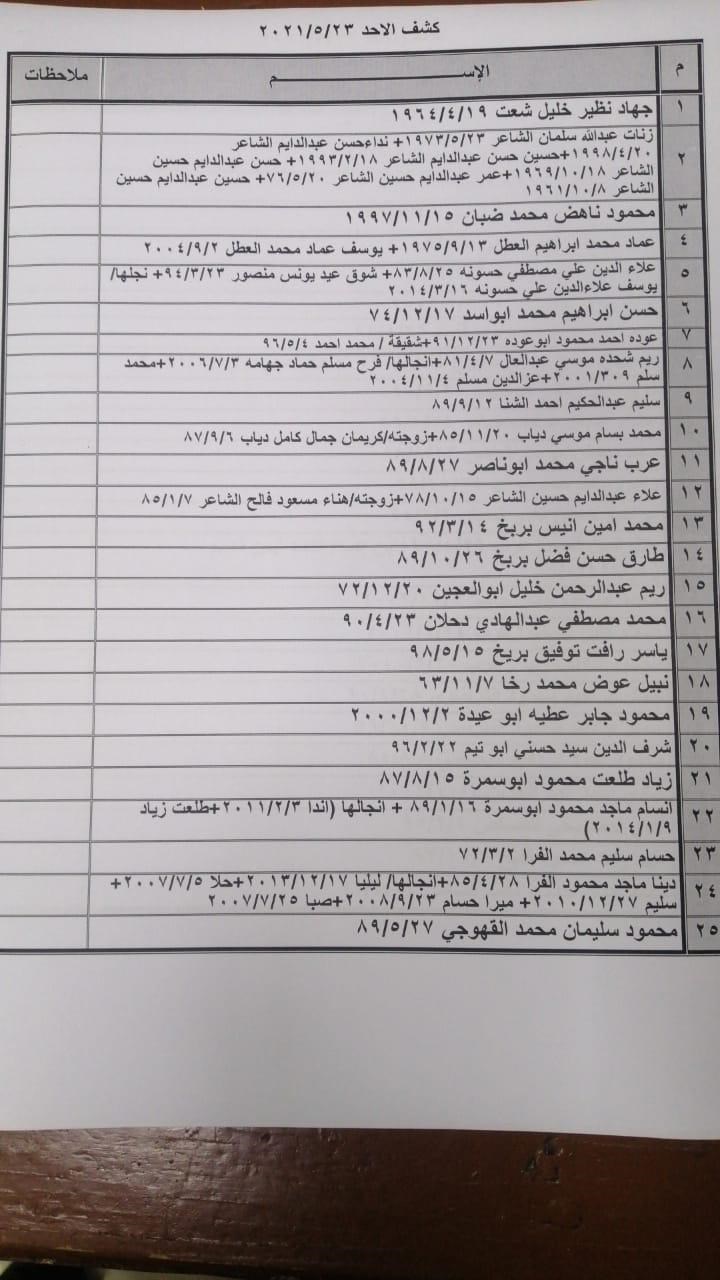 كشف الاحد ٢٠٢١/٥/٢٣
م الإســـــــــــــــــــم ملاحظات
١ جهاد نظير خليل شعت ١٩٦٤/٤/١٩
٢ زنات عبدالله سلمان الشاعر ١٩٧٣/٥/٢٣+ نداءحسن عبدالدايم الشاعر
١٩٩٨/٤/٢٠+حسين حسن عبدالدايم الشاعر ١٩٩٣/٢/١٨+ حسن عبدالدايم حسين
الشاعر ١٩٦٩/١٠/١٨+عمر عبدالدايم حسين الشاعر ٧٦/٥/٢٠+ حسين عبدالدايم حسين
الشاعر ١٩٦١/١٠/٨
٣ محمود ناهض محمد ضبان ١٩٩٧/١١/١٥
٤ عماد محمد ابراهيم العطل ١٩٧٥/٩/١٣+ يوسف عماد محمد العطل ٢٠٠٤/٩/٢
٥ علاء الدين علي مصطفي حسونه ٨٣/٨/٢٥+ شوق عيد يونس منصور ٩٤/٣/٢٣+ نجلها/
يوسف علاءالدين علي حسونه ٢٠١٤/٣/١٦
٦ حسن ابراهيم محمد ابواسد ٧٤/١٢/١٧
٧ عوده احمد محمود ابوعوده ٩١/١٢/٢٣+شقيقة / محمد احمد ٩٦/٥/٤
٨ ريم شحده موسي عبدالعال ٨١/٤/٧+انجالها/ فرح مسلم حماد جهامه ٢٠٠٦/٧/٣+محمد
سلم ٢٠٠١/٣٠٩+عزالدين مسلم ٢٠٠٤/١١/٤
٩ سليم عبدالحكيم احمد الشنا ٨٩/٩/١٢
١٠ محمد بسام موسي دياب ٨٥/١١/٢٠+زوجته/كريمان جمال كامل دياب ٨٧/٩/٦
١١ عرب ناجي محمد ابوناصر ٨٩/٨/٢٧
١٢ علاء عبدالدايم حسين الشاعر ٧٨/١٠/١٥+زوجته/هناء مسعود فالح الشاعر ٨٥/١/٧
١٣ محمد امين انيس بربخ ٩٢/٣/١٤
١٤ طارق حسن فضل بربخ ٨٩/١٠/٢٦
١٥ ريم عبدالرحمن خليل ابوالعجين ٧٢/١٢/٢٠
١٦ محمد مصطفي عبدالهادي دحلان ٩٠/٤/٢٣
١٧ ياسر رافت توفيق بريخ ٩٨/٥/١٥
١٨ نبيل عوض محمد رخا ٦٣/١١/٧
١٩ محمود جابر عطيه ابو عيدة ٢٠٠٠/١٢/٢
٢٠ شرف الدين سيد حسني ابو تيم ٩٦/٢/٢٢
٢١ زياد طلعت محمود ابوسمرة ٨٧/٨/١٥
٢٢ انسام ماجد محمود ابوسمرة ٨٩/١/١٦ + انجالها (اندا ٢٠١١/٢/٣+طلعت زياد
٢٠١٤/١/٩)
٢٣ حسام سليم محمد الفرا ٧٢/٣/٢
٢٤ دينا ماجد محمود الفرا ٨٥/٤/٢٨+انجالها/ ليليا ٢٠١٣/١٢/١٧+حلا ٢٠٠٧/٧/٥+
سليم ٢٠١٠/١٢/٢٧+ ميرا حسام ٢٠٠٨/٩/٢٣+صبا ٢٠٠٧/٧/٢٥
٢٥ محمود سليمان محمد القهوجي ٨٩/٥/٢٧